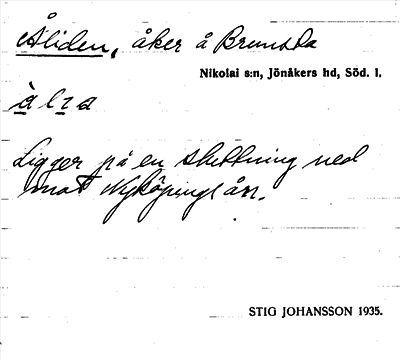 Åliden, åker å Brunsta
Nikolai s:n, Jönåkers hd, Söd. l.
Ligger på en sluttning ned
mot Nyköpings ån.
STIG JOHANSSON 1935.